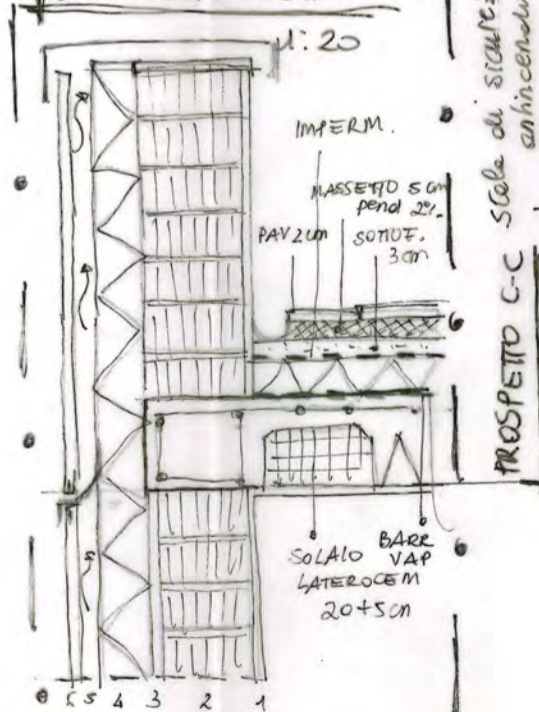 1:20
IMPERM.
MASSETTO 5 cm
pend 2%
PAV 2cm
SOTTOF.
3 cm
SOLAIO
LATEROCEM
20+5 cm
BARR
VAP
6 5 4 3 2 1
PROSPETTO C-C Scala di sicurez
antincendi